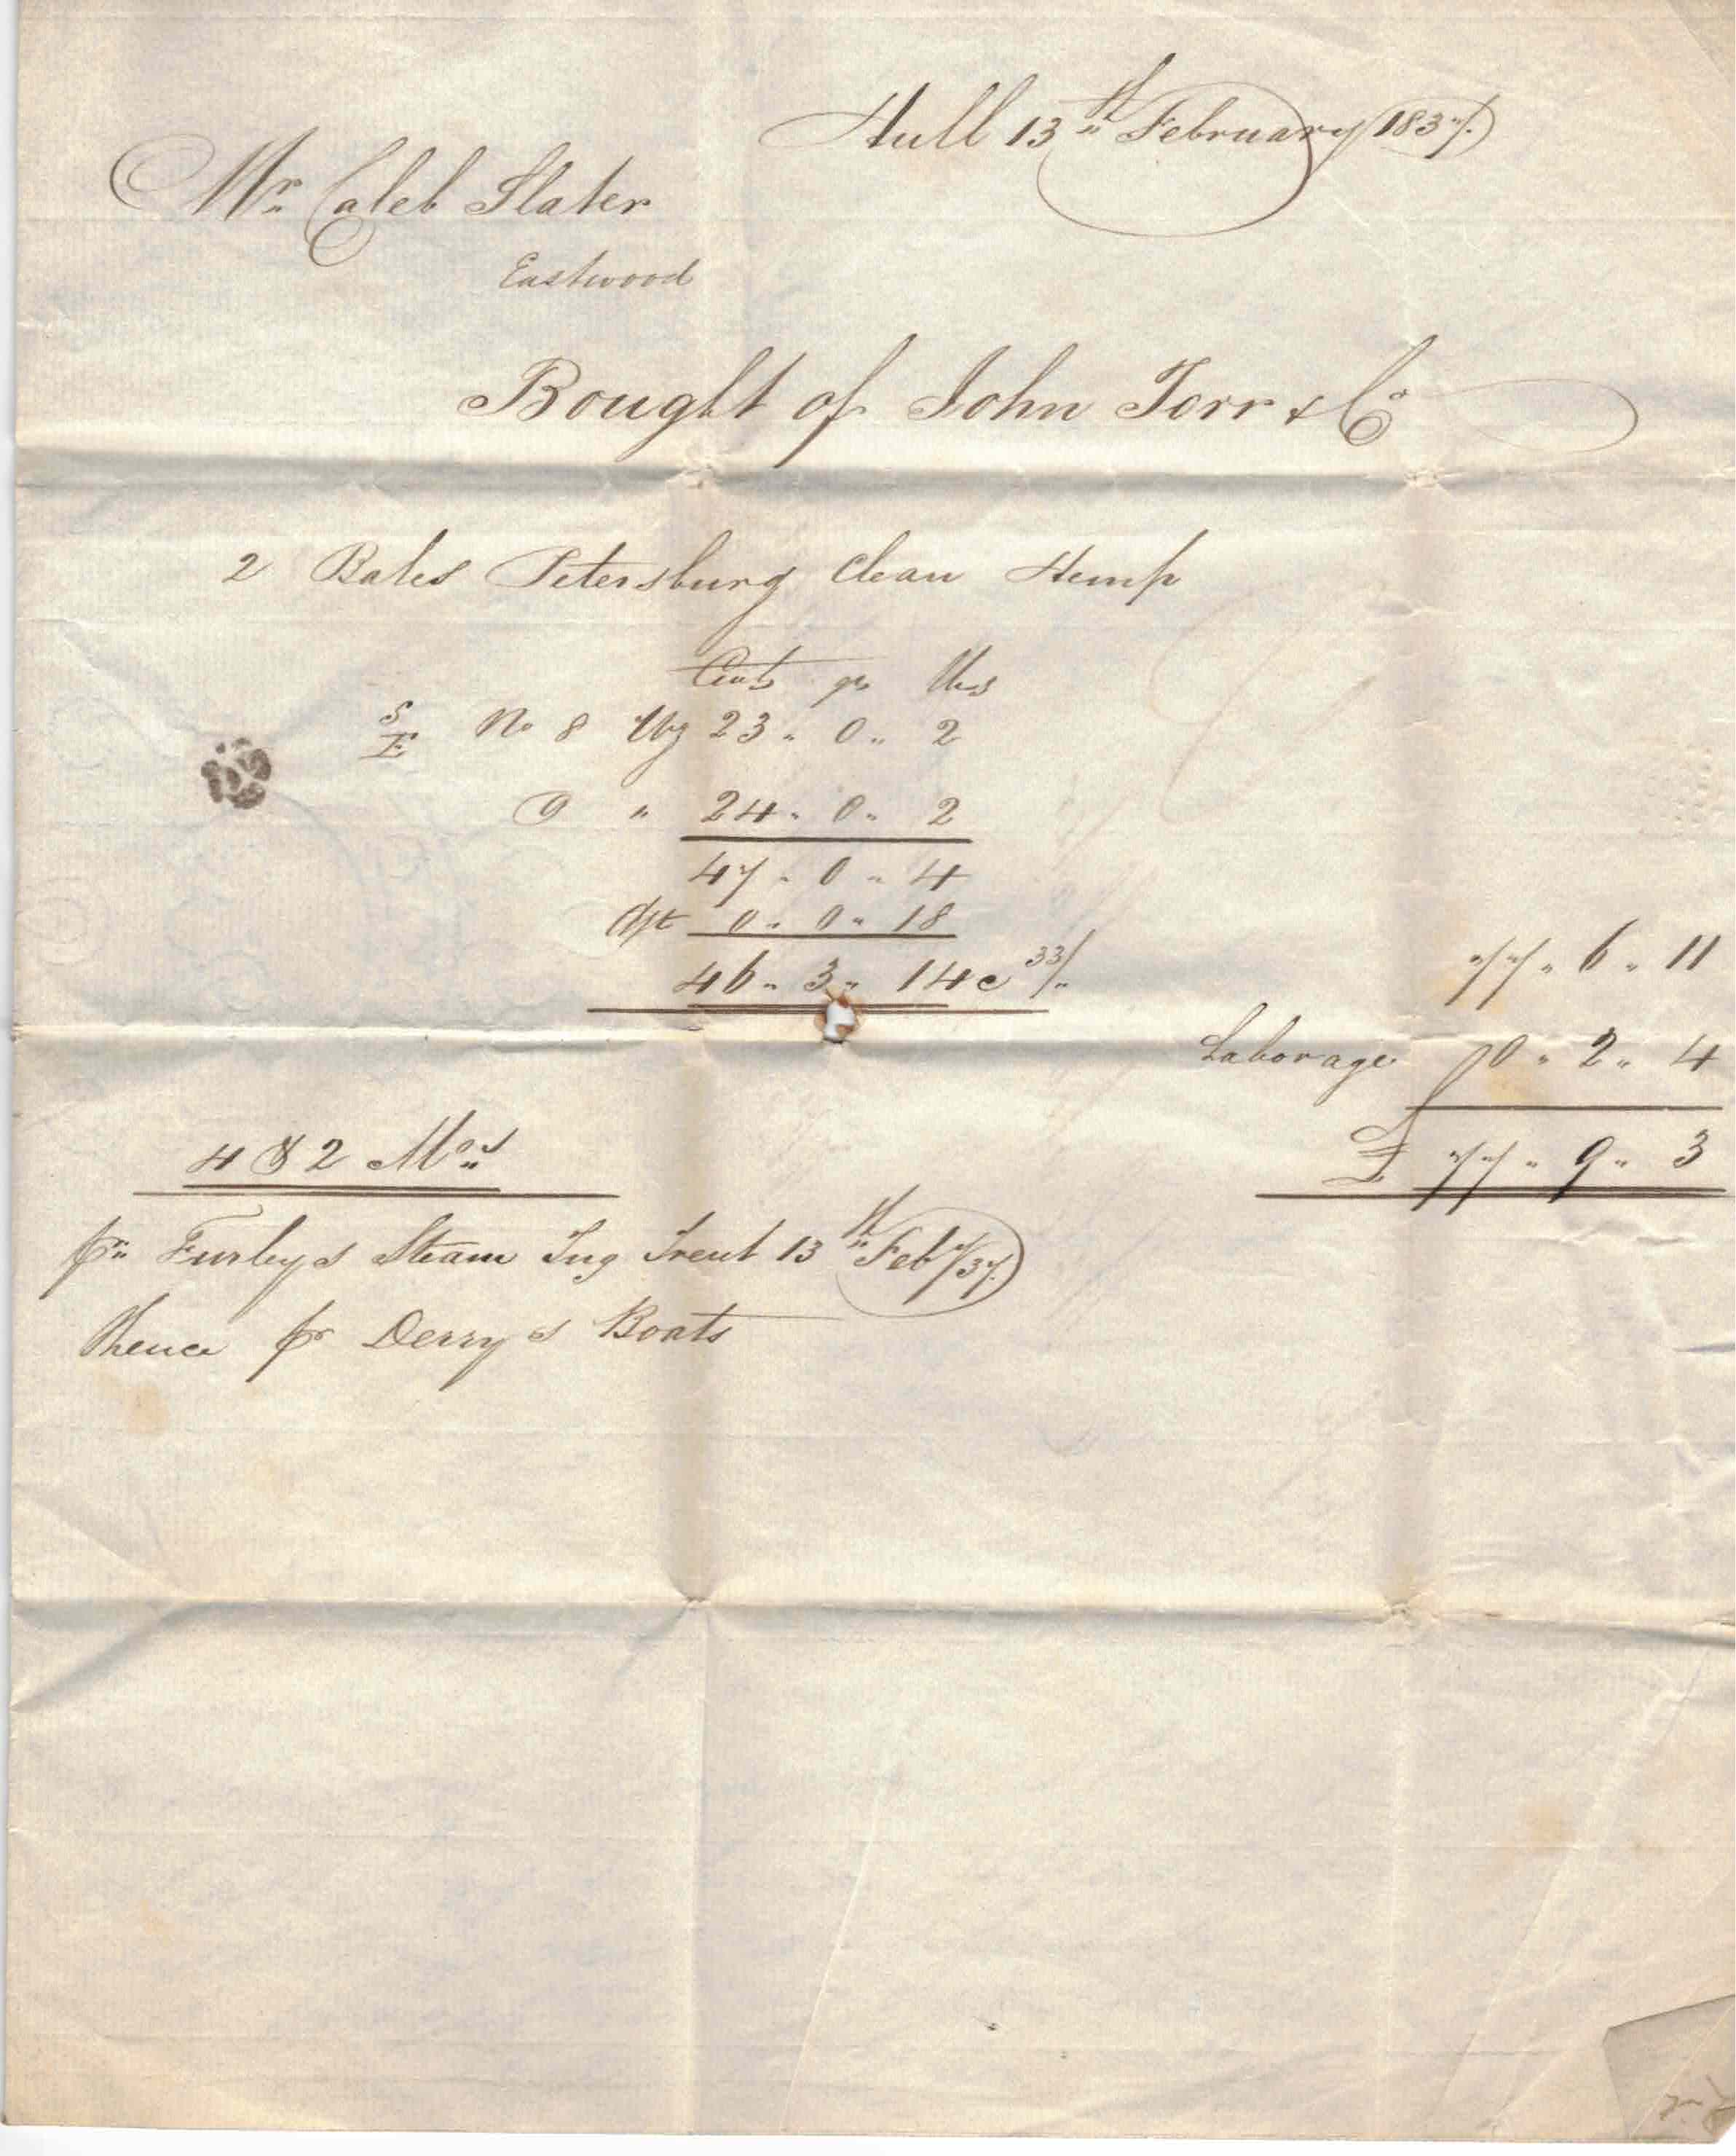 Hull 13th February 1837.
Mr. Caleb Slater
Eastwood
Bought of John Torr & Co
2 Bales Petersburg Clean Hemp
Cwts qrs lbs
S
E No 8 Wg 23 " 0 " 2
9 " 24 " 0 " 2
47 " 0 " 4
dft 0 " 0 " 18
46 " 3 " 14 @ 33/" 77 " 6 " 11
Laborage 0 " 2 " 4
£ 77 " 9 " 3
4 & 2 Mos
pr Furleys Steam Tug Trent 13th Feby/37.
thence pr Derry's Boats